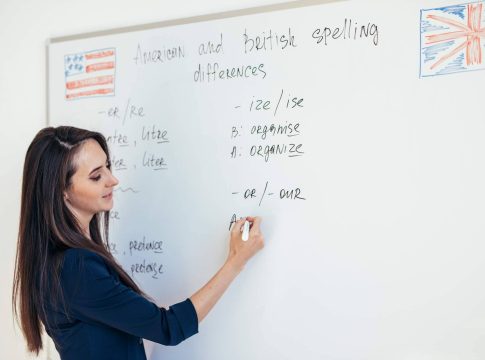 American and British spelling
differences
-ER/RE
litre
liter
pretence
pretense
-ize/ise
B: organise
A: organize
-OR/-OUR
A